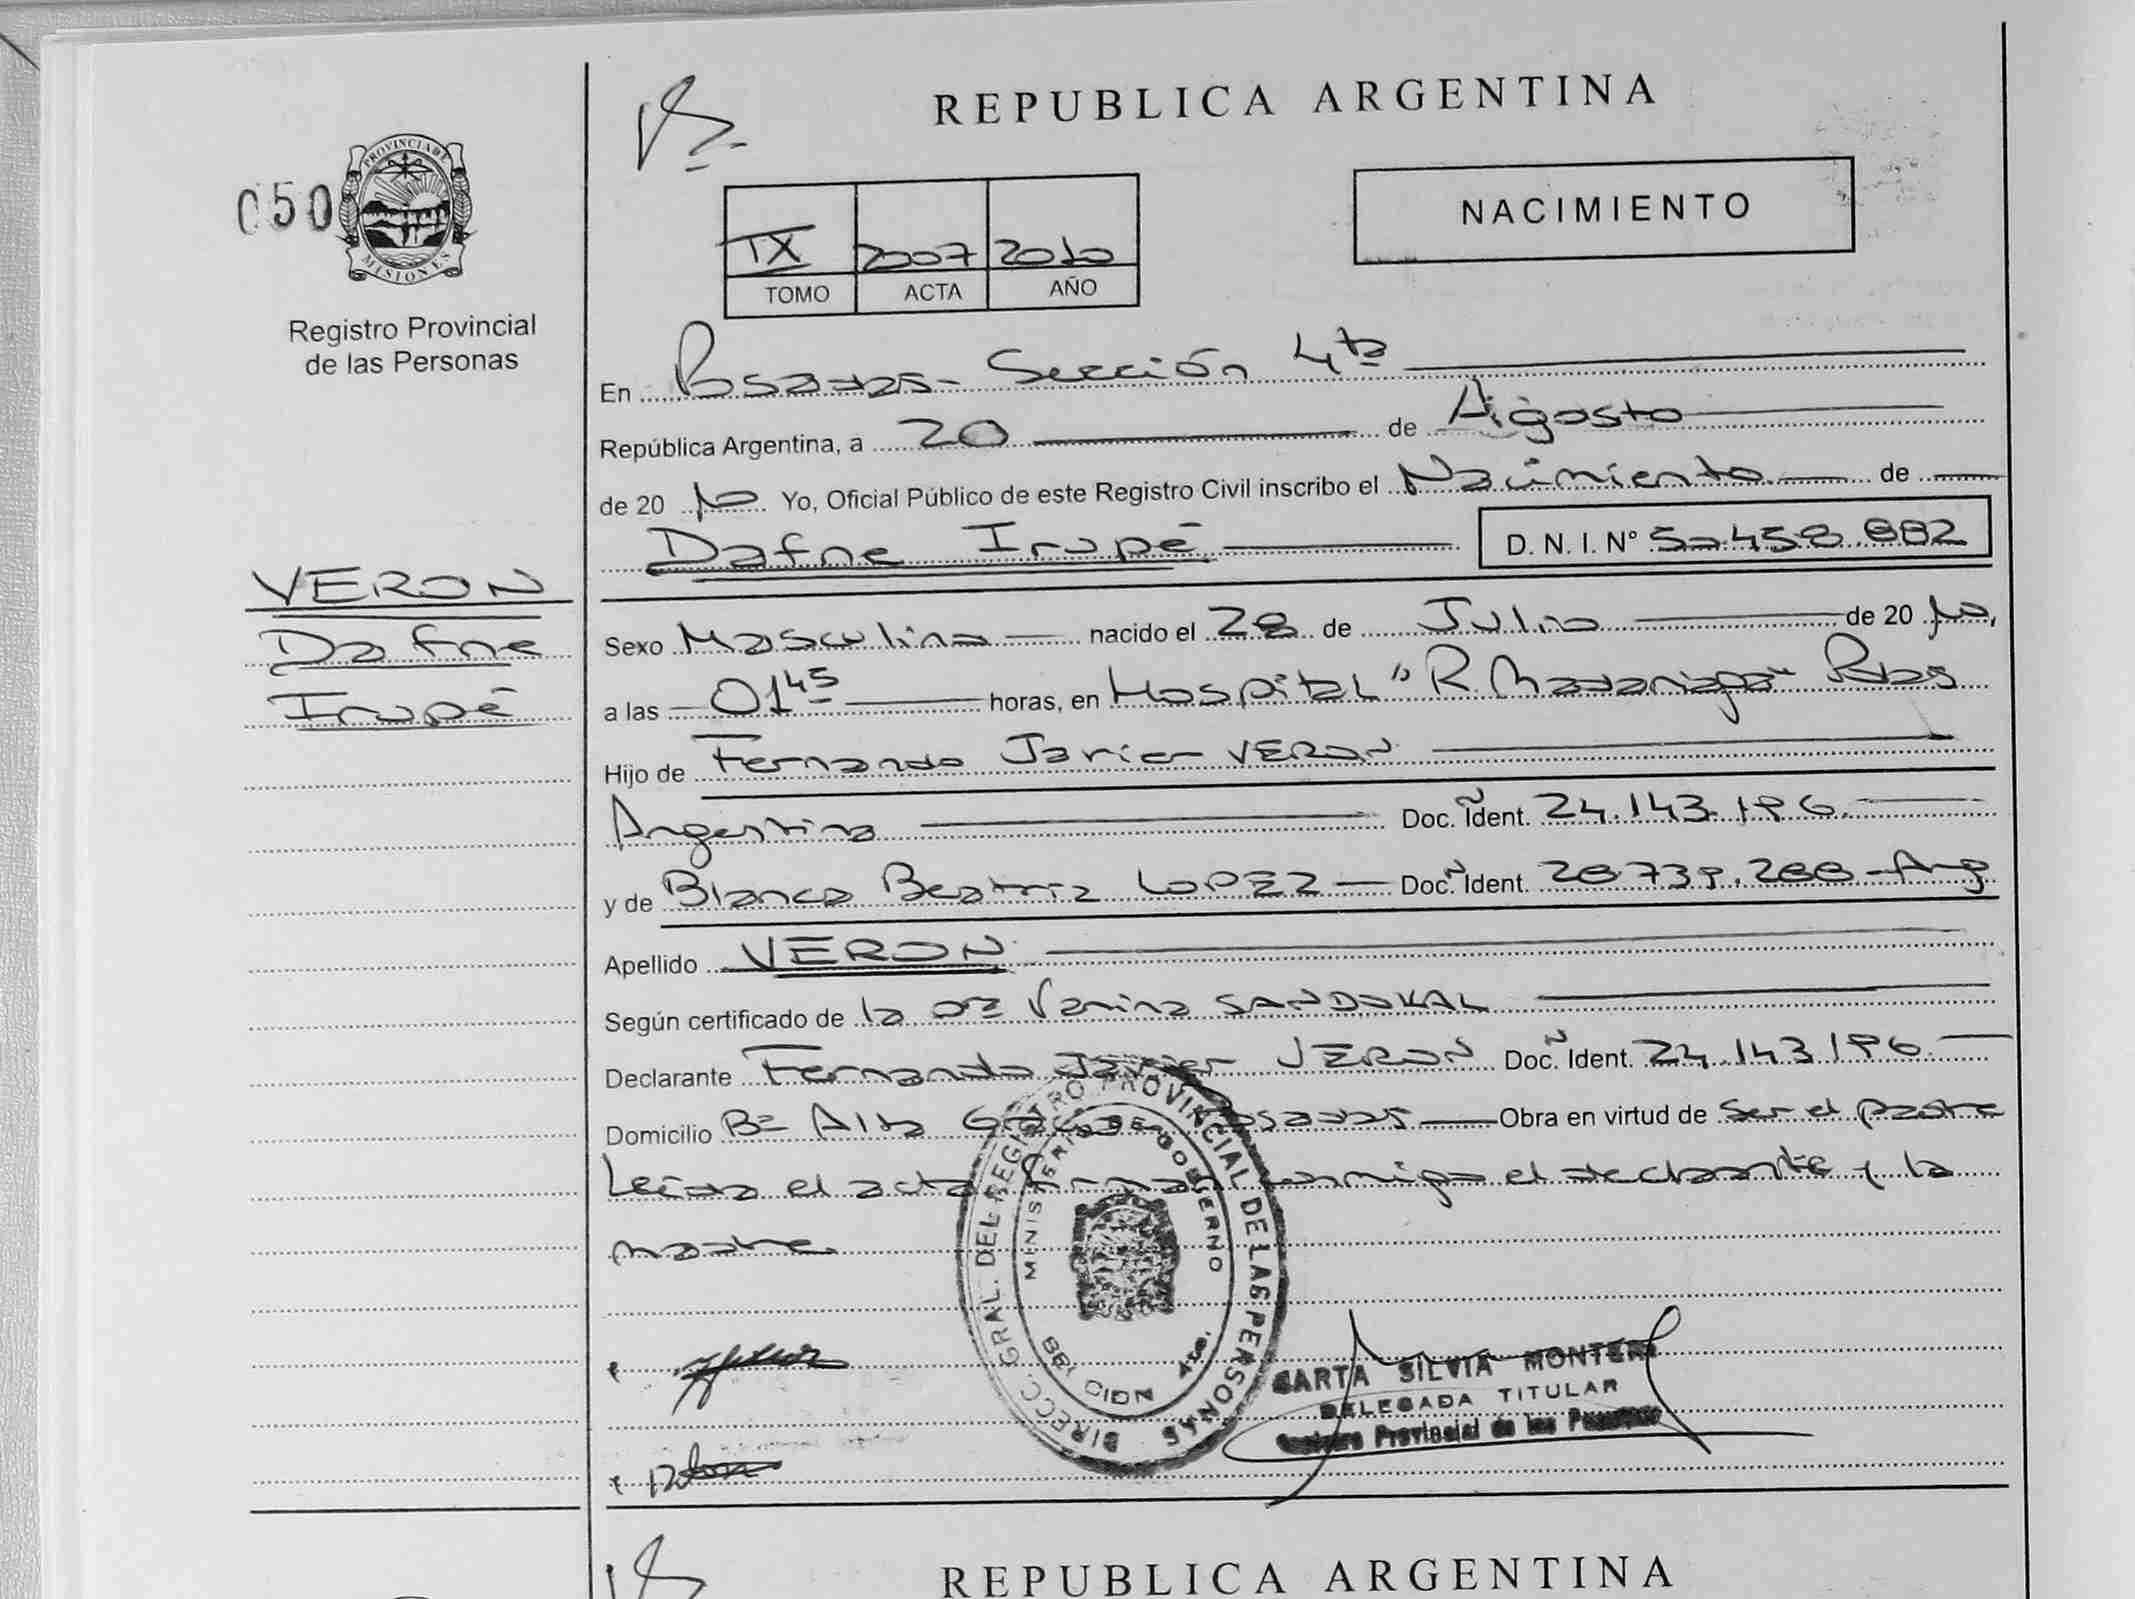 REPUBLICA ARGENTINA
050
PROVINCIA DE
MISIONES
Registro Provincial
de las Personas
NACIMIENTO
IX 2007 2010
TOMO ACTA AÑO
En Posadas - Sección 4ta
República Argentina, a 20 de Agosto
de 20 10 Yo, Oficial Público de este Registro Civil inscribo el Nacimiento de
Dafne Irupé D. N. I. Nº 50.458.882
VERON
Dafne
Irupé
Sexo Masculino nacido el 28 de Julio de 20 10,
a las 01 45 horas, en Hospital "R. Madariaga" Pdas
Hijo de Fernando Javier VERON
Argentina Doc. Ident. 24.143.196.
y de Blanca Beatriz LOPEZ Doc. Ident. 28.739.288 - Arg
Apellido VERON
Según certificado de la Dra Vanina SANDOVAL
Declarante Fernando Javier VERON Doc. Ident. 24.143.196.
Domicilio Bº Alta Gracia Posadas Obra en virtud de Ser el padre
Leída el acta firman conmigo el declarante y la
madre.
DIRECC. GRAL. DEL REGISTRO PROVINCIAL DE LAS PERSONAS
MINISTERIO DE GOBIERNO
SECCION 4ta.
SILVIA MONTERO
DELEGADA TITULAR
Registro Provincial de las Personas
REPUBLICA ARGENTINA